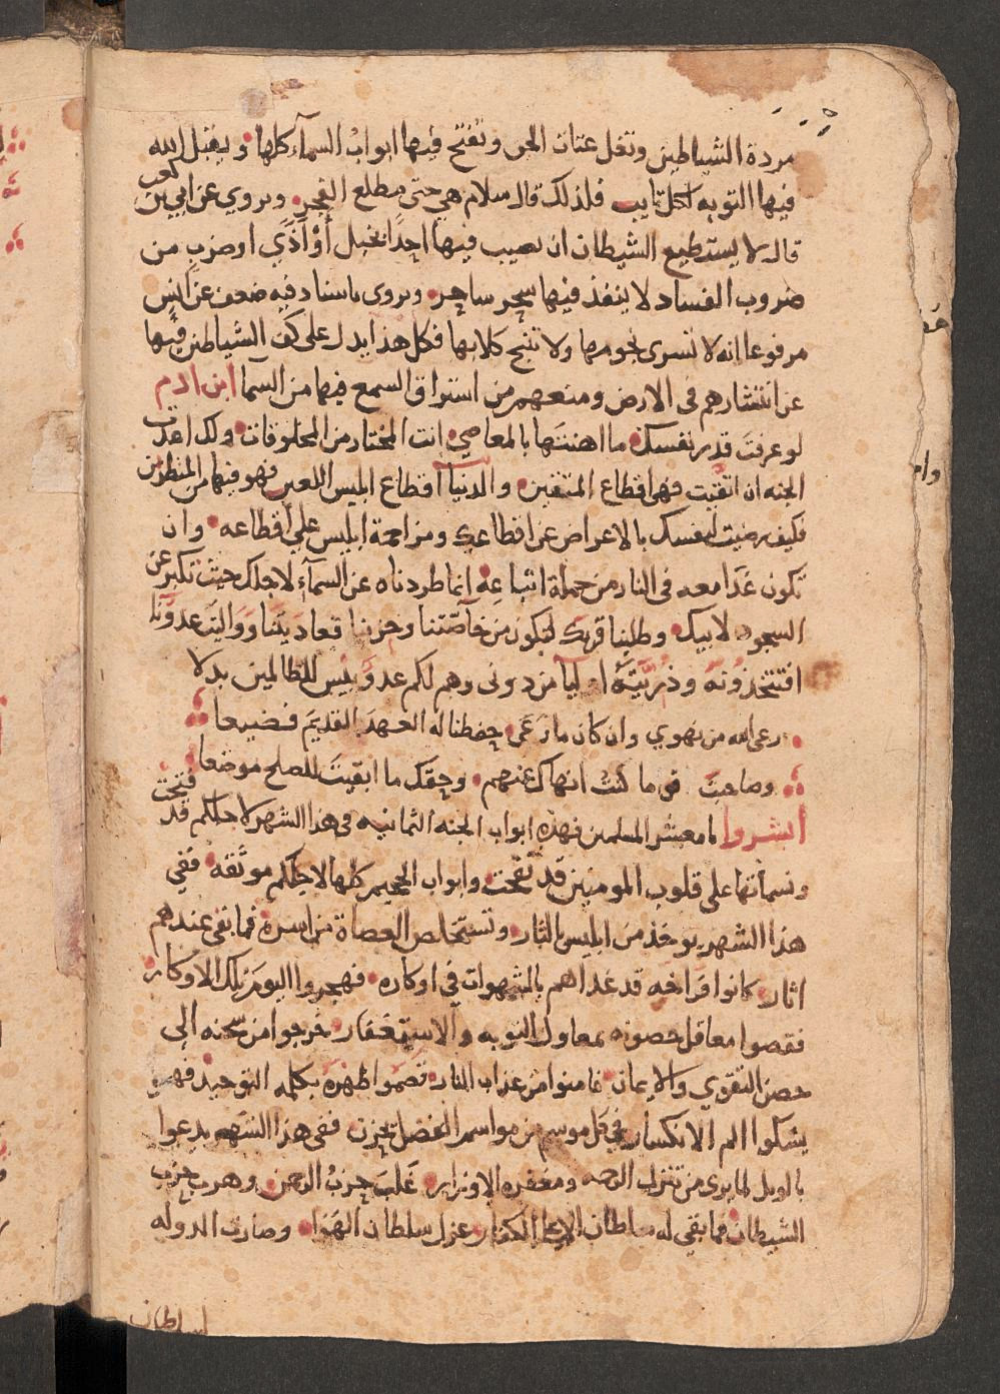 مردة الشياطين وتغل عتات الجن وتفتح فيها ابواب السمآء كلها ويقبل الله
فيها التوبه لكل تايب فلذلك قال سلام هي حتى مطلع الفجر ويروي عن ابي بن كعب
قال لا يستطيع الشيطان ان يصيب فيها احدًا بخبل أو أذًي او ضرب من
ضروب الفساد لا ينفذ فيها سحر ساحر ويروى باسناد فيه ضعف عن انس
مرفوعا انه لا تسرى نجومها ولا تنبح كلابها فكل هذا يدل على كف الشياطين فيها
عن انتشارهم فى الارض ومنعهم من استراق السمع فيها من السما ابن ادم
لو عرفت قدر نفسك ما اهنتها بالمعاصي انت المختار من المخلوقات ولك اعدت
الجنه ان اتقيت فهى اقطاع المتقين والدنيا اقطاع ابليس اللعين فهو فيها من المنظرين
فكيف رضيت لنفسك بالاعراض عن اقطاعك ومزاحمة ابليس علي اقطاعه وان
تكون غدا معه فى النار من جملة اتباعه انما طردناه عن السمآء لاجلك حيث تكبر عن
السجود لابيك وطلبنا قربك لتكون من خاصتنا وحزبنا فعاديتنا وواليت عدونا
افتتخذونه وذريته اوليآ من دونى وهم لكم عدو بئس للظالمين بدلا
رعى الله من نهوي وان كان ما رعى حفظنا له العهد القديم فضيعا
وصاحبت قوما كنت انهاك عنهم وحقك ما ابقيت للصلح موضعا
أبشروا يا معشر المسلمين فهذه ابواب الجنه الثمانيه فى هذا الشهر لاجلكم قد فتحت
ونسماتها على قلوب المومنين قد نفحت وابواب الجحيم كلها لاجلكم موثقه ففي
هذا الشهر يوخذ من ابليس بالثار وتستخلص العصاة من اسره فما بقى عندهم
اثار كانوا فراخه قد غداهم بالشهوات في اوكاره فهجروا اليوم تلك الاوكار
فقصوا معاقل حصونه بمعاول التوبه والاستغفار خرجوا من سجنه الى
حصن التقوي والايمان فامنوا من عذاب النار قصموا ظهره بكلمه التوحيد فهو
يشكوا الم الانكسار في كل موسم من مواسم الفضل يحزن ففى هذا الشهر يدعوا
بالويل لما يرى من تنزل الرحمه ومغفره الاوزار غلب حزب الرحمن وهرب حزب
الشيطان فما بقي له سلطان الا على الكفار عزل سلطان الهوا وصارت الدوله
لسلطان